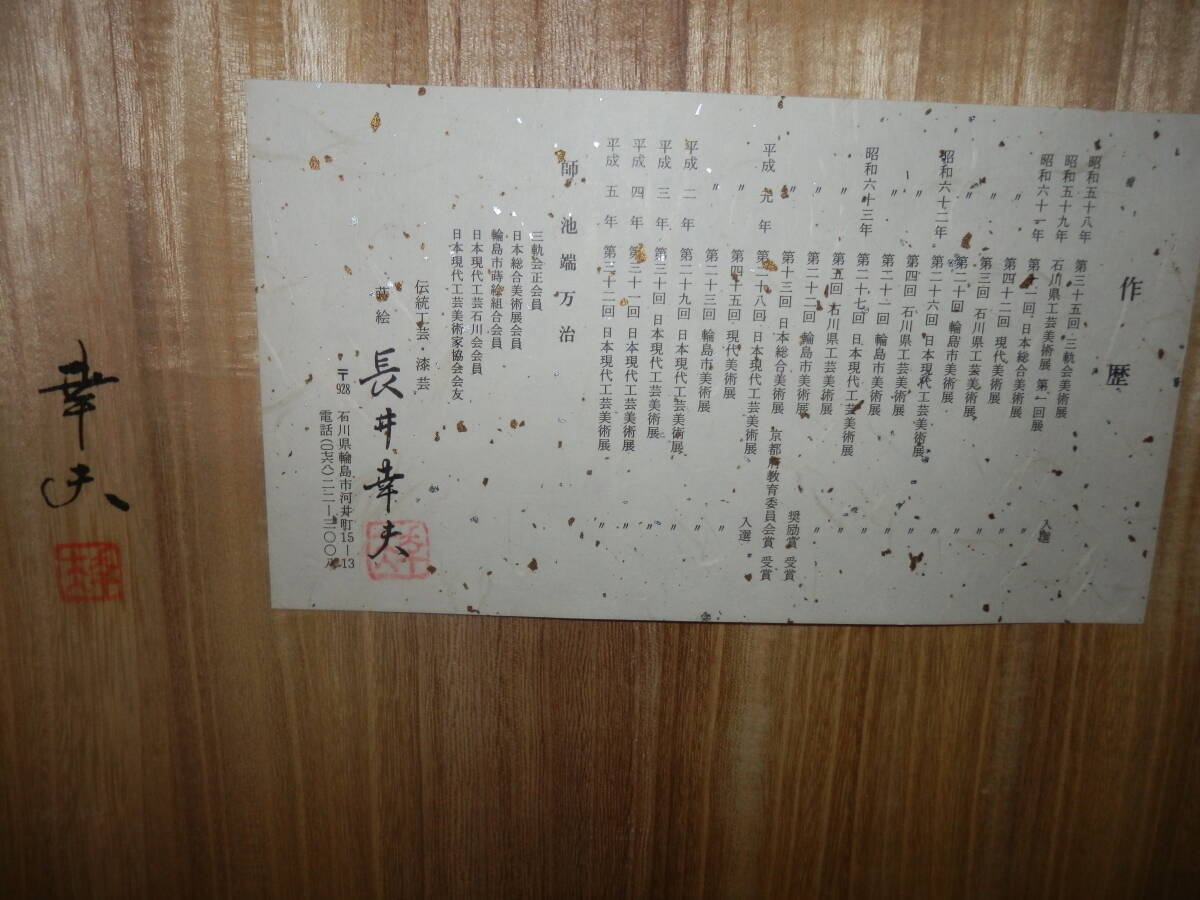 作歴
昭和五十八年 第三十五回 三軌会美術展 入選
昭和五十九年 石川県工芸美術展 第一回展 〃
昭和六十一年 第十一回 日本総合美術展 〃
第四十二回 現代美術展 〃
第三回 石川県工芸美術展 〃
第二十回 輪島市美術展 〃
昭和六十二年 第二十六回 日本現代工芸美術展 〃
〃 第四回 石川県工芸美術展 〃
〃 第二十一回 輪島市美術展 〃
昭和六十三年 第二十七回 日本現代工芸美術展 〃
〃 第五回 石川県工芸美術展 〃
〃 第二十二回 輪島市美術展 奨励賞 受賞
〃 第十三回 日本総合美術展 京都府教育委員会賞 受賞
平成元年 第二十八回 日本現代工芸美術展 入選
〃 第四十五回 現代美術展 〃
〃 第二十三回 輪島市美術展 〃
平成二年 第二十九回 日本現代工芸美術展 〃
平成三年 第三十回 日本現代工芸美術展 〃
平成四年 第三十一回 日本現代工芸美術展 〃
平成五年 第三十二回 日本現代工芸美術展 〃
師 池端万治
三軌会正会員
日本総合美術展会員
輪島市蒔絵組合会員
日本現代工芸石川会会員
日本現代工芸美術家協会会友
伝統工芸・漆芸
蒔絵 長井幸夫
〒928 石川県輪島市河井町15―13
電話(〇七六八)二二―三〇〇八
幸夫